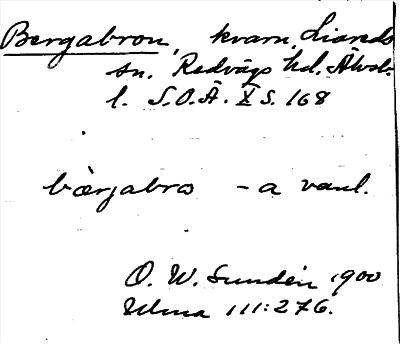 Bergabron, kvarn, Liareds
sn. Redvägs hd. Älvsb.
l. S.O.Ä. X S. 168
bærjabro -a vanl.
O. W. Sundén 1900
Ulma 111:276.